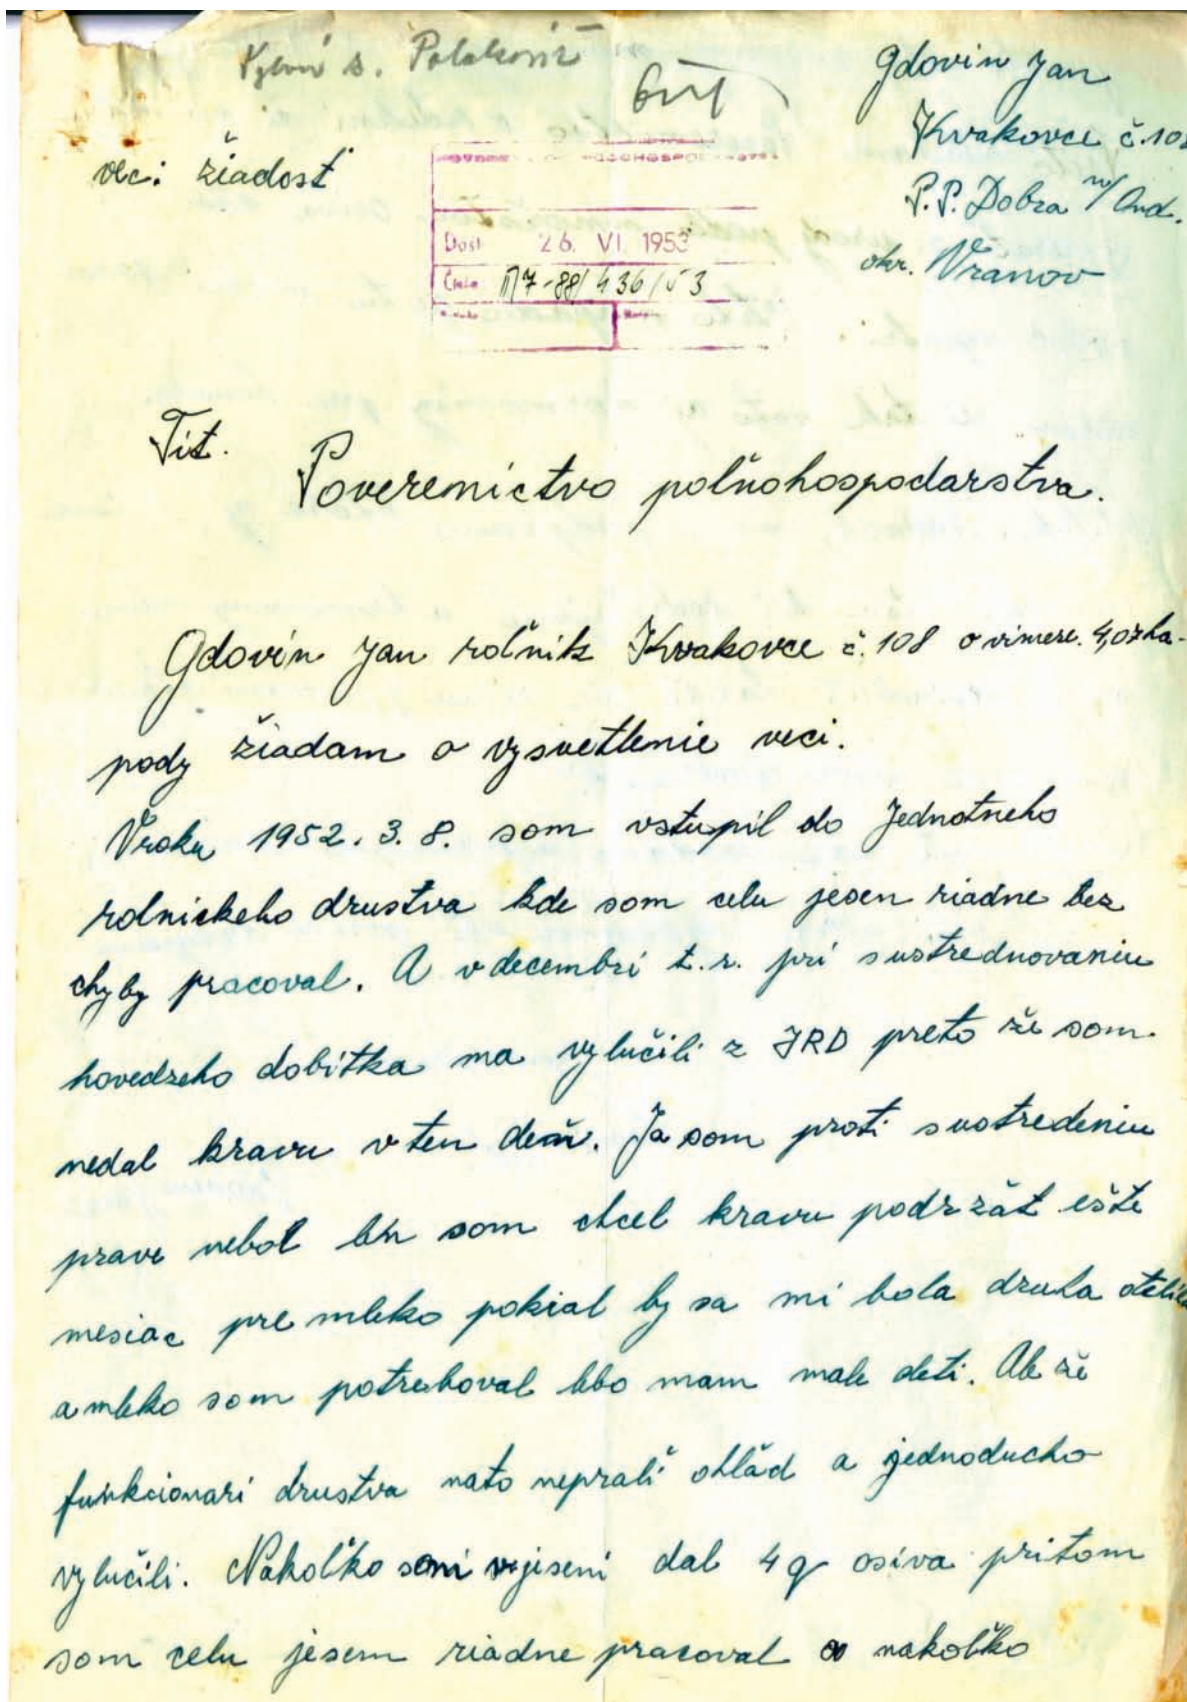 Gdovin Jan
Kvakovce č.108
vec: žiadosť
P.P. Dobra n/Ond.
okr. Vranov
Došl 26. VI. 1953
Číslo 436/53
Tit.
Poverenictvo poľnohospodarstva.
Gdovin Jan roľnik Kvakovce č. 108 o vimere. 4,07 ha-
pody žiadam o vysvetlenie veci.
Vroku 1952. 3. 8. som vstupil do Jednotneho
rolnickeho drustva kde som celu jesen riadne bez
chyby pracoval. A v decembri t.r. pri sustrednovaniu
hovedzeho dobitka ma vylučili z JRD preto že som
nedal kravu v ten deň. Ja som proti sustredeniu
prave nebol len som chcel kravu podržať ešte
mesiac pre mleko pokial by sa mi bola druha otelila
a mleko som potreboval lebo mam male deti. Ale že
funkcionari drustva nato neprali ohlad a jednoducho
vylučili. Nakoľko som vjeseni dal 4 q osiva pritom
som celu jesem riadne pracoval a nakoľko